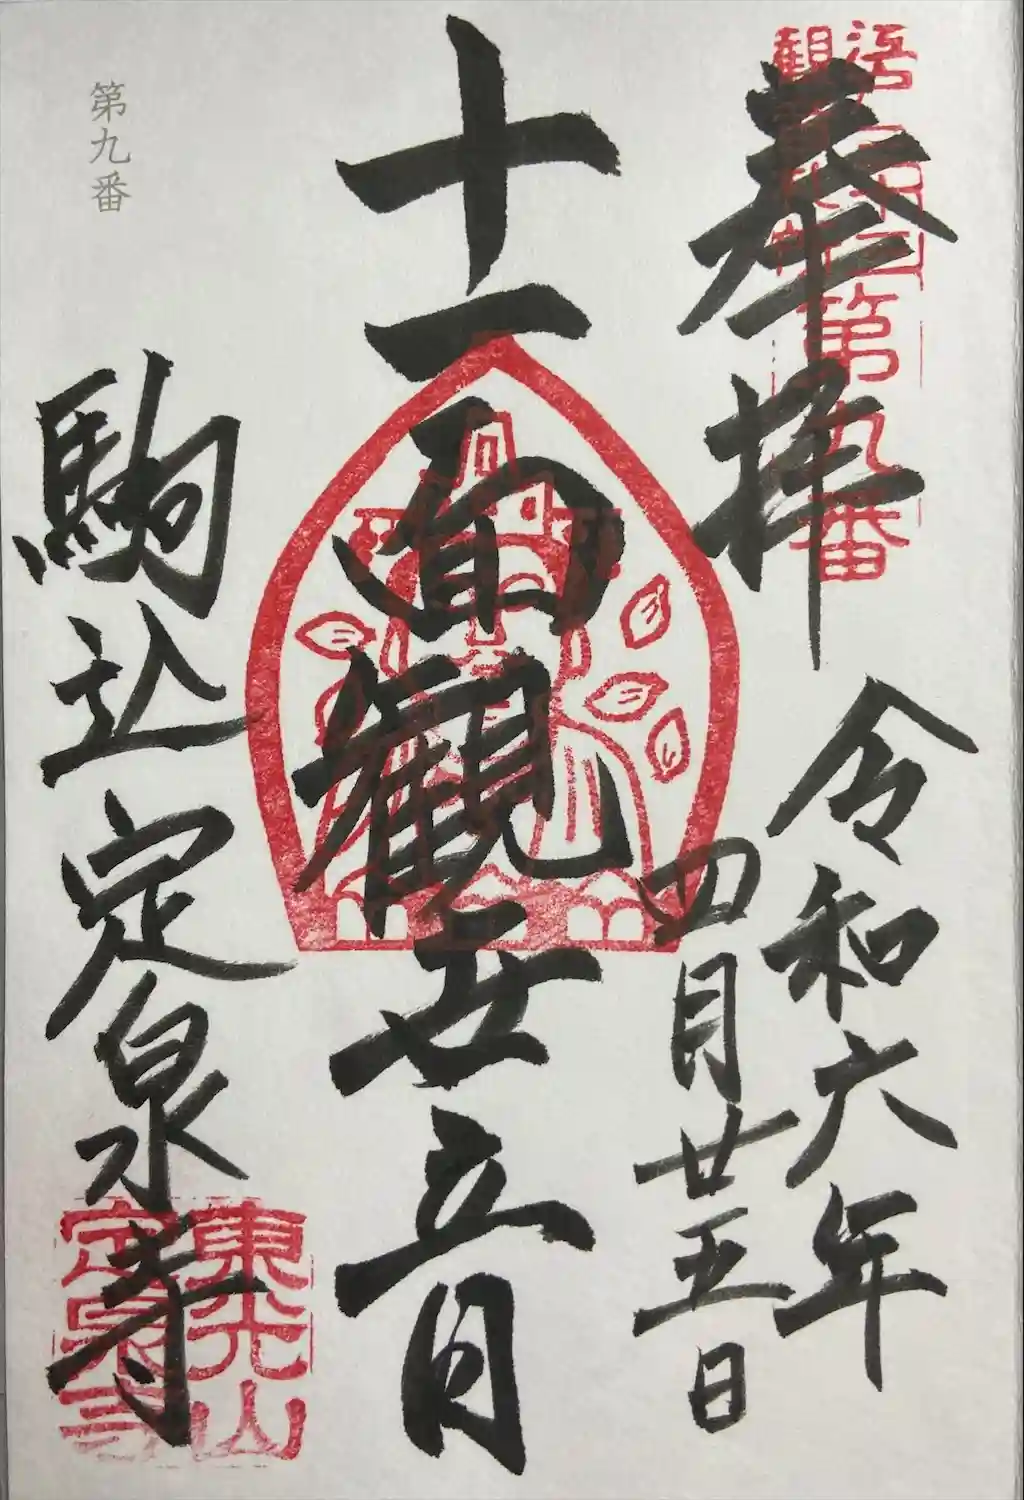 奉拝
第九番
令和六年
四月廿五日
十一面観世音
第九番
駒込定泉寺
東光山
定泉寺